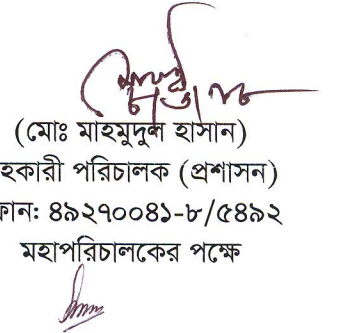 (মোঃ মাহমুদুল হাসান)
হকারী পরিচালক (প্রশাসন)
ফোন: ৪৯২৭০০৪১-৮/৫৪৯২
মহাপরিচালকের পক্ষে